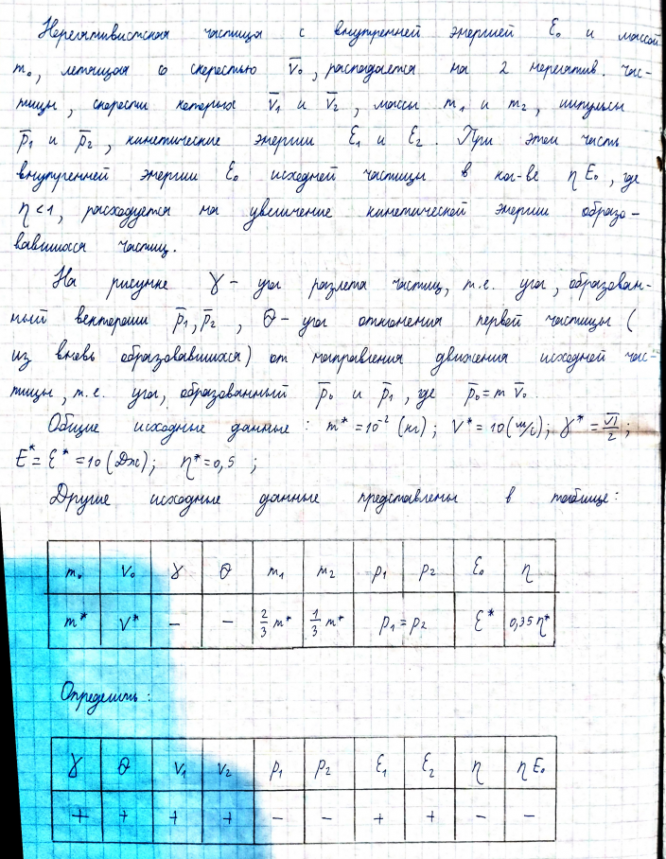 Нерелятивистская частица с внутренней энергией E₀ и массой
m₀, летящая со скоростью v̄₀, распадается на 2 нерелятив. час-
тицы, скорости которых v̄₁ и v̄₂, массы m₁ и m₂, импульсы
p̄₁ и p̄₂, кинетические энергии Ɛ₁ и Ɛ₂. При этом часть
внутренней энергии E₀ исходной частицы в кол-ве ηE₀, где
η<1, расходуется на увеличение кинетической энергии образо-
вавшихся частиц.
На рисунке γ - угол разлета частиц, т.е. угол, образован-
ный векторами p̄₁, p̄₂, Θ - угол отклонения первой частицы (
из вновь образовавшихся) от направления движения исходной час-
тицы, т.е. угол, образованный p̄₀ и p̄₁, где p̄₀ = m v̄₀
Общие исходные данные: m* = 10⁻² (кг); V* = 10 (м/с); γ* = π/2;
E* = Ɛ* = 10 (Дж); η* = 0,5;
Другие исходные данные представлены в таблице:
m₀ V₀ γ Θ m₁ m₂ p₁ p₂ Ɛ₀ η
m* V* - - 2/3 m* 1/3 m* p₁ = p₂ Ɛ* 0,35 η*
Определить:
γ Θ V₁ V₂ p₁ p₂ Ɛ₁ Ɛ₂ η ηE₀
+ + + + - - + + - -